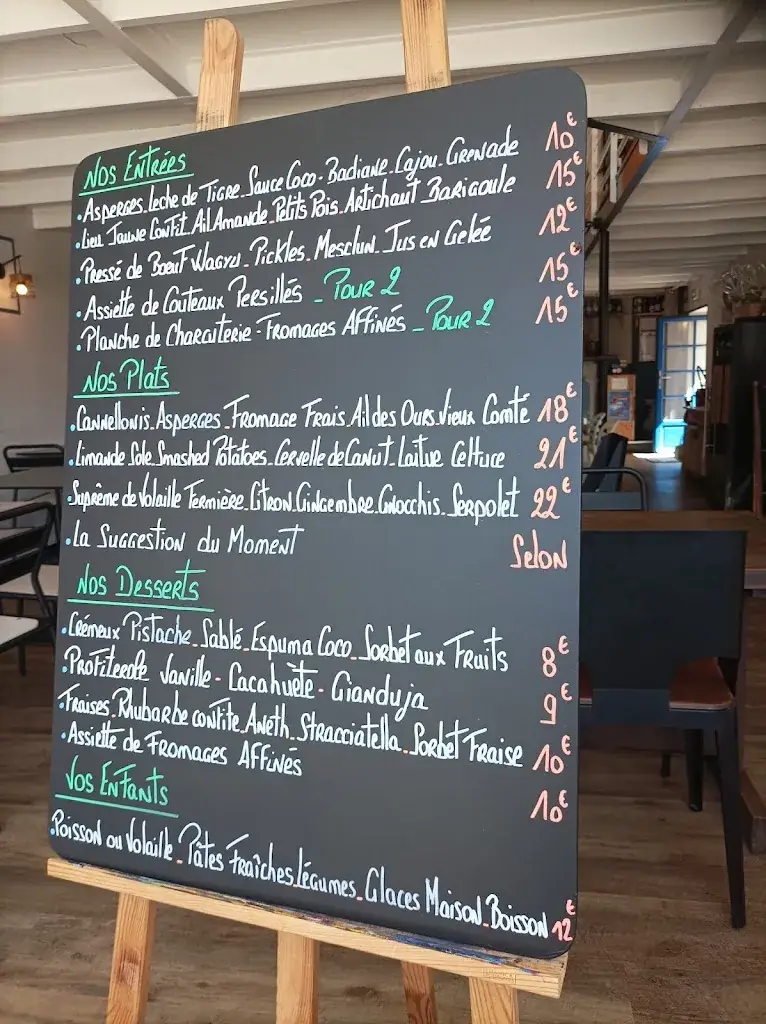 Nos Entrées
• Asperges_Leche de Tigre_Sauce Coco - Badiane_Cajou_Grenade 10€
• Lieu Jaune Confit_Ail Amande_Petits Pois_Artichaut Barigoule 15€
• Pressé de Bœuf Wagyu_Pickles_Mesclun_Jus en Gelée 12€
• Assiette de Couteaux Persillés _ Pour 2 15€
• Planche de Charcuterie - Fromages Affinés _ Pour 2 15€
Nos Plats
• Cannellonis_Asperges_Fromage Frais_Ail des Ours_Vieux Comté 18€
• Limande Sole_Smashed Potatoes_Cervelle de Canut_Laitue Celtuce 21€
• Suprême de Volaille Fermière_Citron_Gingembre_Gnocchis_Serpolet 22€
• La Suggestion du Moment Selon
Nos Desserts
• Crémeux Pistache_Sablé_Espuma Coco_Sorbet aux Fruits 8€
• Profiterole Vanille - Cacahuète - Gianduja 9€
Fraises_Rhubarbe confite_Aneth_Stracciatella_Sorbet Fraise 10€
• Assiette de Fromages Affinés 10€
Vos Enfants
• Poisson ou Volaille_Pâtes Fraîches_Légumes_Glaces Maison_Boisson 12€